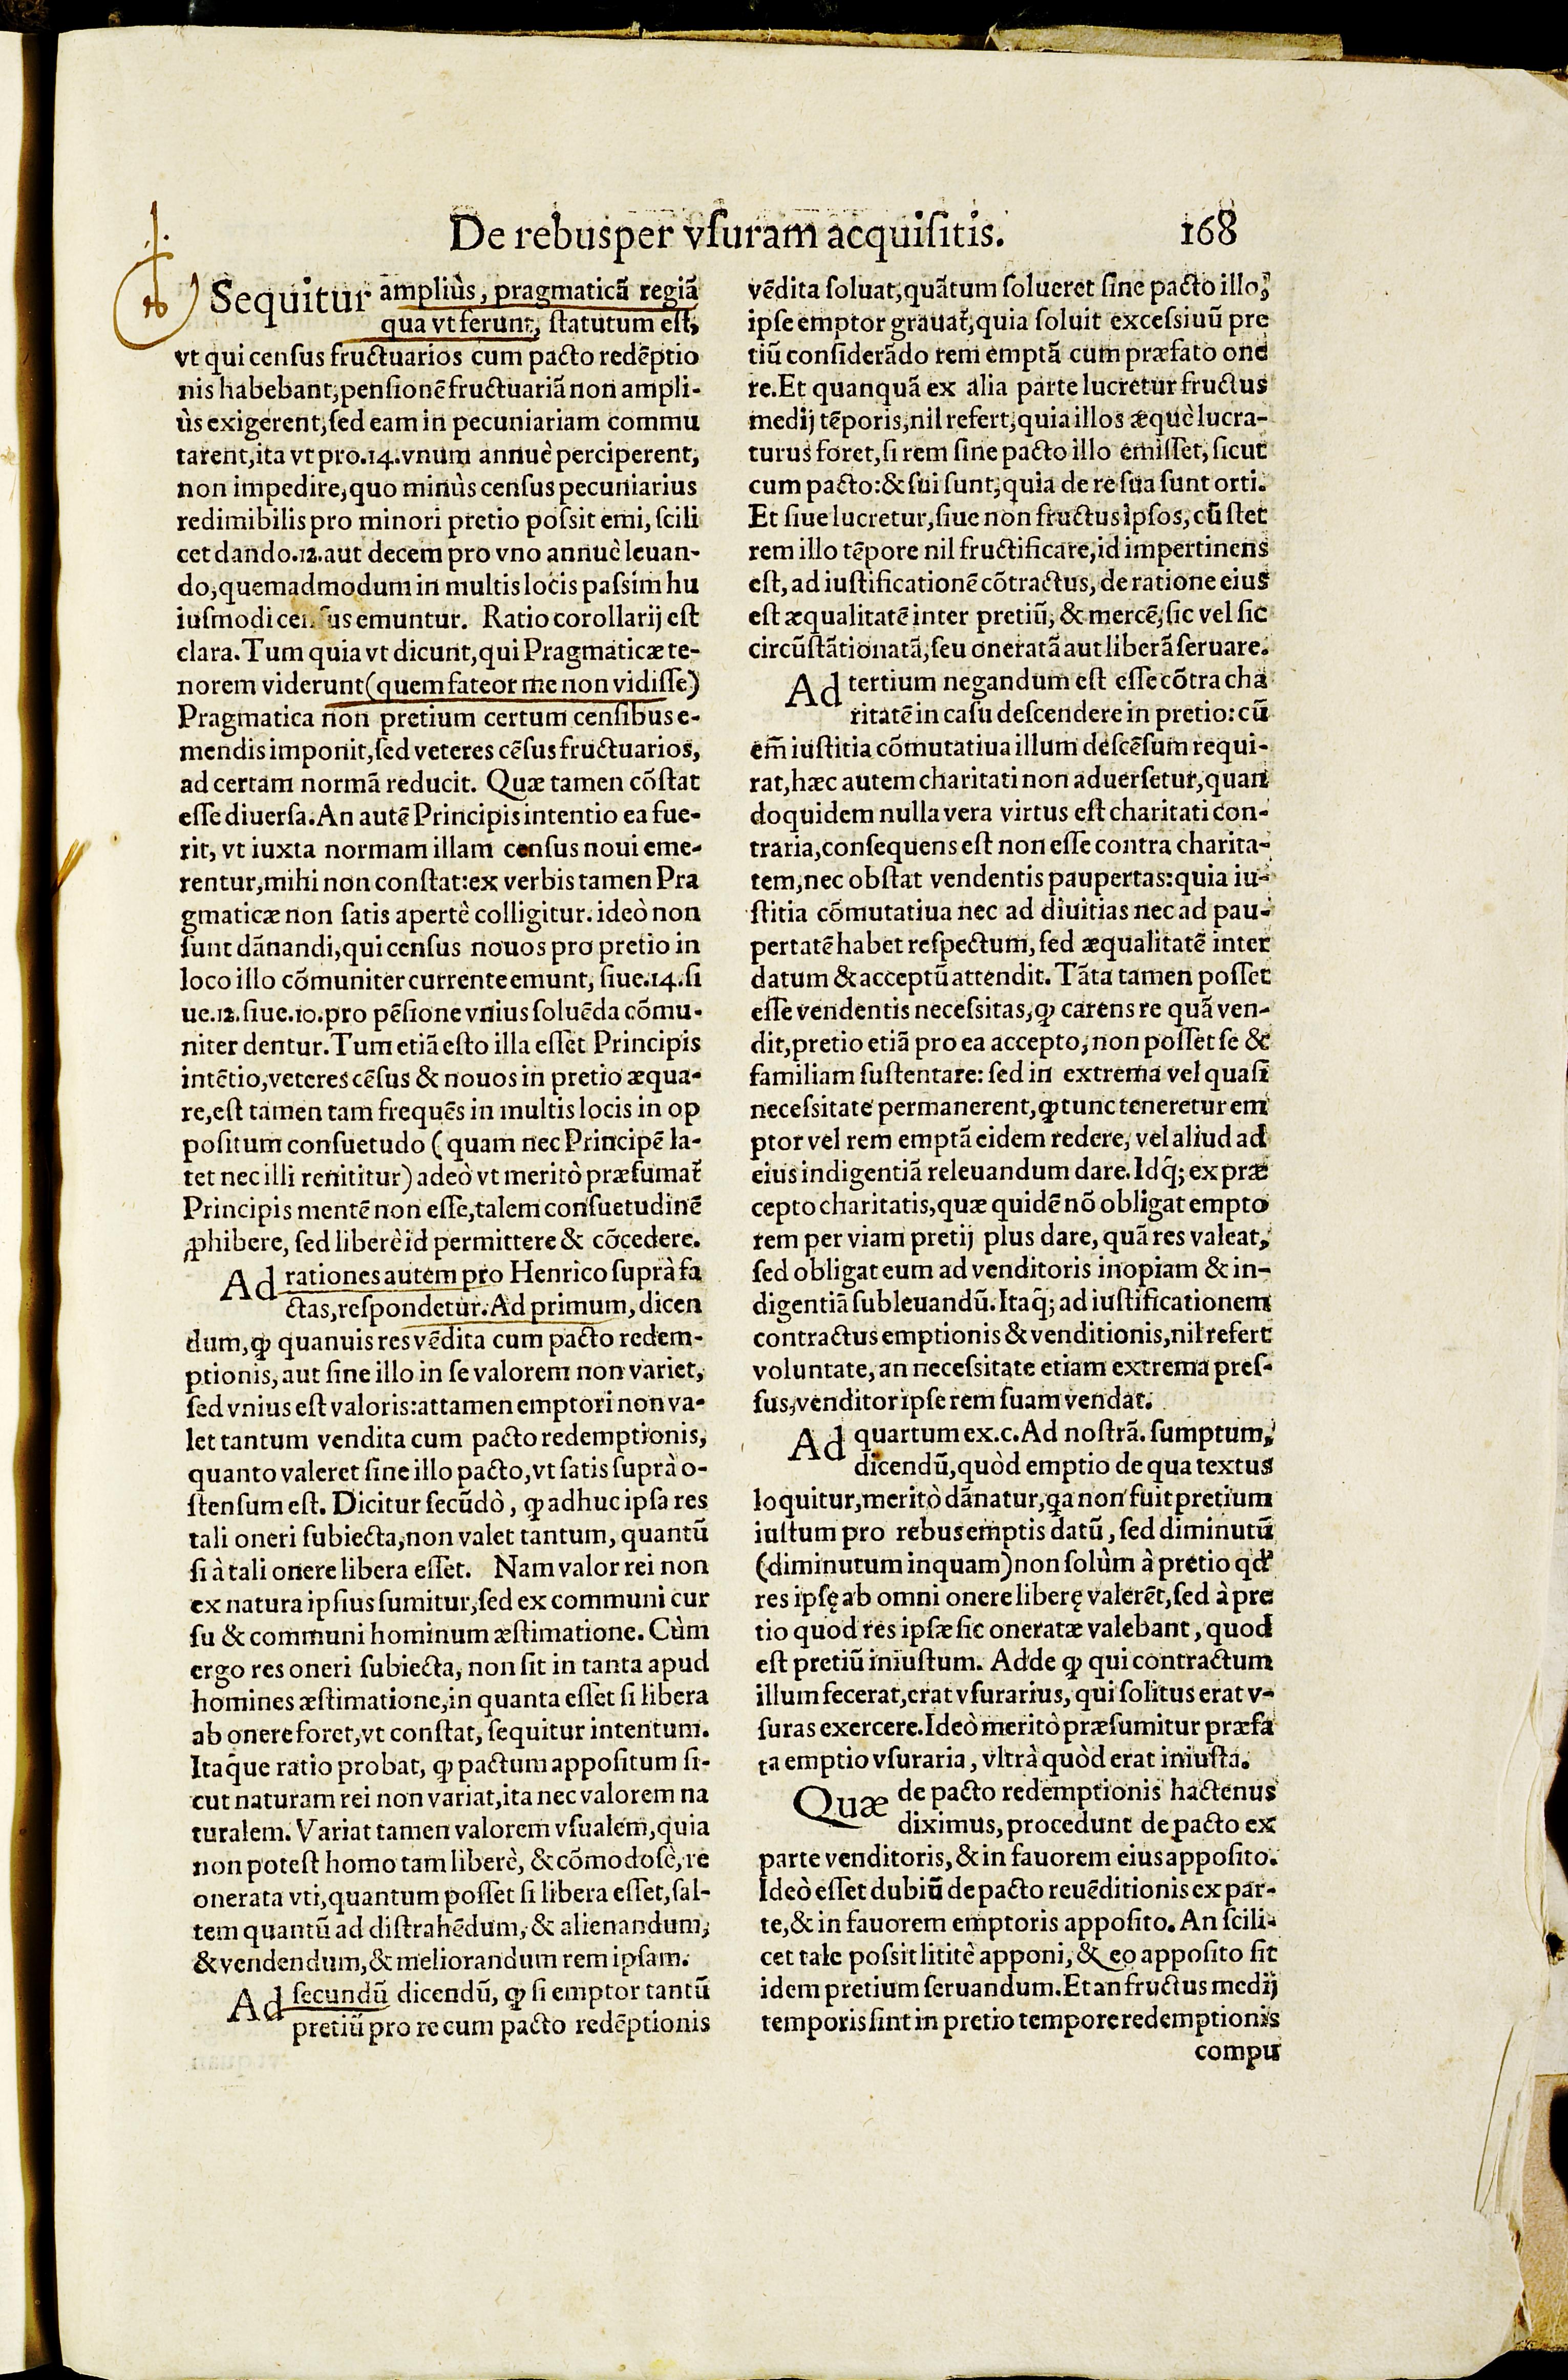 De rebus per vſuram acquiſitis. 168
Sequitur ampliùs, pragmaticã regiã
qua vt ferunt, ſtatutum eſt,
vt qui cenſus fructuarios cum pacto redẽptio
nis habebant, penſionẽ fructuariã non ampli-
ùs exigerent, ſed eam in pecuniariam commu
tarent, ita vt pro. 14. vnum annuè perciperent,
non impedire, quo minùs cenſus pecuniarius
redimibilis pro minori pretio poſsit emi, ſcili
cet dando. 12. aut decem pro vno annuè leuan-
do, quemadmodum in multis locis paſsim hu
iuſmodi cenſus emuntur. Ratio corollarij eſt
clara. Tum quia vt dicunt, qui Pragmaticæ te-
norem viderunt (quem fateor me non vidiſſe)
Pragmatica non pretium certum cenſibus e-
mendis imponit, ſed veteres cẽſus fructuarios,
ad certam normã reducit. Quæ tamen cõſtat
eſſe diuerſa. An autẽ Principis intentio ea fue-
rit, vt iuxta normam illam cenſus noui eme-
rentur, mihi non conſtat: ex verbis tamen Pra
gmaticæ non ſatis apertè colligitur. ideò non
ſunt dãnandi, qui cenſus nouos pro pretio in
loco illo cõmuniter currente emunt, ſiue. 14. ſi
ue. 12. ſiue. 10. pro pẽſione vnius ſoluẽda cõmu-
niter dentur. Tum etiã eſto illa eſſet Principis
intẽtio, veteres cẽſus & nouos in pretio æqua-
re, eſt tamen tam frequẽs in multis locis in op
poſitum conſuetudo (quam nec Principẽ la-
tet nec illi renititur) adeò vt meritò præſumat᷑
Principis mentẽ non eſſe, talem conſuetudinẽ
ꝓhibere, ſed liberè id permittere & cõcedere.
Ad rationes autem pro Henrico ſuprà fa
ctas, reſpondetur. Ad primum, dicen
dum, ꝙ quanuis res vẽdita cum pacto redem-
ptionis, aut ſine illo in ſe valorem non variet,
ſed vnius eſt valoris: attamen emptori non va-
let tantum vendita cum pacto redemptionis,
quanto valeret ſine illo pacto, vt ſatis ſuprà o-
ſtenſum eſt. Dicitur ſecũdò, ꝙ adhuc ipſa res
tali oneri ſubiecta, non valet tantum, quantũ
ſi à tali onere libera eſſet. Nam valor rei non
ex natura ipſius ſumitur, ſed ex communi cur
ſu & communi hominum æſtimatione. Cùm
ergo res oneri ſubiecta, non ſit in tanta apud
homines æſtimatione, in quanta eſſet ſi libera
ab onere foret, vt conſtat, ſequitur intentum.
Itaq̃ue ratio probat, ꝙ pactum appoſitum ſi-
cut naturam rei non variat, ita nec valorem na
turalem. Variat tamen valorem vſualem, quia
non poteſt homo tam liberè, & cõmodoſè, re
onerata vti, quantum poſſet ſi libera eſſet, ſal-
tem quantũ ad diſtrahẽdum, & alienandum,
& vendendum, & meliorandum rem ipſam.
Ad ſecundũ dicendũ, ꝙ ſi emptor tantũ
pretiũ pro re cum pacto redẽptionis
vẽdita ſoluat, quãtum ſolueret ſine pacto illo,
ipſe emptor grauat᷑, quia ſoluit exceſsiuũ pre
tiũ conſiderãdo rem emptã cum præfato one
re. Et quanquã ex alia parte lucretur fructus
medij tẽporis, nil refert, quia illos æquè lucra-
turus foret, ſi rem ſine pacto illo emiſſet, ſicut
cum pacto: & ſui ſunt, quia de re ſua ſunt orti.
Et ſiue lucretur, ſiue non fructus ipſos, cũ ſtet
rem illo tẽpore nil fructificare, id impertinens
eſt, ad iuſtificationẽ cõtractus, de ratione eius
eſt æqualitatẽ inter pretiũ, & mercẽ, ſic vel ſic
circũſtãtionatã, ſeu oneratã aut liberã ſeruare.
Ad tertium negandum eſt eſſe cõtra cha
ritatẽ in caſu deſcendere in pretio: cũ
em̃ iuſtitia cõmutatiua illum deſcẽſum requi-
rat, hæc autem charitati non aduerſetur, quan
doquidem nulla vera virtus eſt charitati con-
traria, conſequens eſt non eſſe contra charita-
tem, nec obſtat vendentis paupertas: quia iu-
ſtitia cõmutatiua nec ad diuitias nec ad pau-
pertatẽ habet reſpectum, ſed æqualitatẽ inter
datum & acceptũ attendit. Tãta tamen poſſet
eſſe vendentis neceſsitas, ꝙ carens re quã ven-
dit, pretio etiã pro ea accepto, non poſſet ſe &
familiam ſuſtentare: ſed in extrema vel quaſi
neceſsitate permanerent, ꝙ tunc teneretur em
ptor vel rem emptã eidem redere, vel aliud ad
eius indigentiã releuandum dare. Idq̃; ex præ
cepto charitatis, quæ quidẽ nõ obligat empto
rem per viam pretij plus dare, quã res valeat,
ſed obligat eum ad venditoris inopiam & in-
digentiã ſubleuandũ. Itaq̃; ad iuſtificationem
contractus emptionis & venditionis, nil refert
voluntate, an neceſsitate etiam extrema preſ-
ſus, venditor ipſe rem ſuam vendat.
Ad quartum ex. c. Ad noſtrã. ſumptum,
dicendũ, quòd emptio de qua textus
loquitur, meritò dãnatur, q̃a non fuit pretium
iuſtum pro rebus emptis datũ, ſed diminutũ
(diminutum inquam) non ſolùm à pretio qď
res ipſę ab omni onere liberę valerẽt, ſed à pre
tio quod res ipſæ ſic oneratæ valebant, quod
eſt pretiũ iniuſtum. Adde ꝙ qui contractum
illum fecerat, erat vſurarius, qui ſolitus erat v-
ſuras exercere. Ideò meritò præſumitur præfa
ta emptio vſuraria, vltrà quòd erat iniuſta.
Quæ de pacto redemptionis hactenus
diximus, procedunt de pacto ex
parte venditoris, & in fauorem eius appoſito.
Ideò eſſet dubiũ de pacto reuẽditionis ex par-
te, & in fauorem emptoris appoſito. An ſcili-
cet tale poſsit lititè apponi, & eo appoſito ſit
idem pretium ſeruandum. Et an fructus medij
temporis ſint in pretio tempore redemptionis
compu